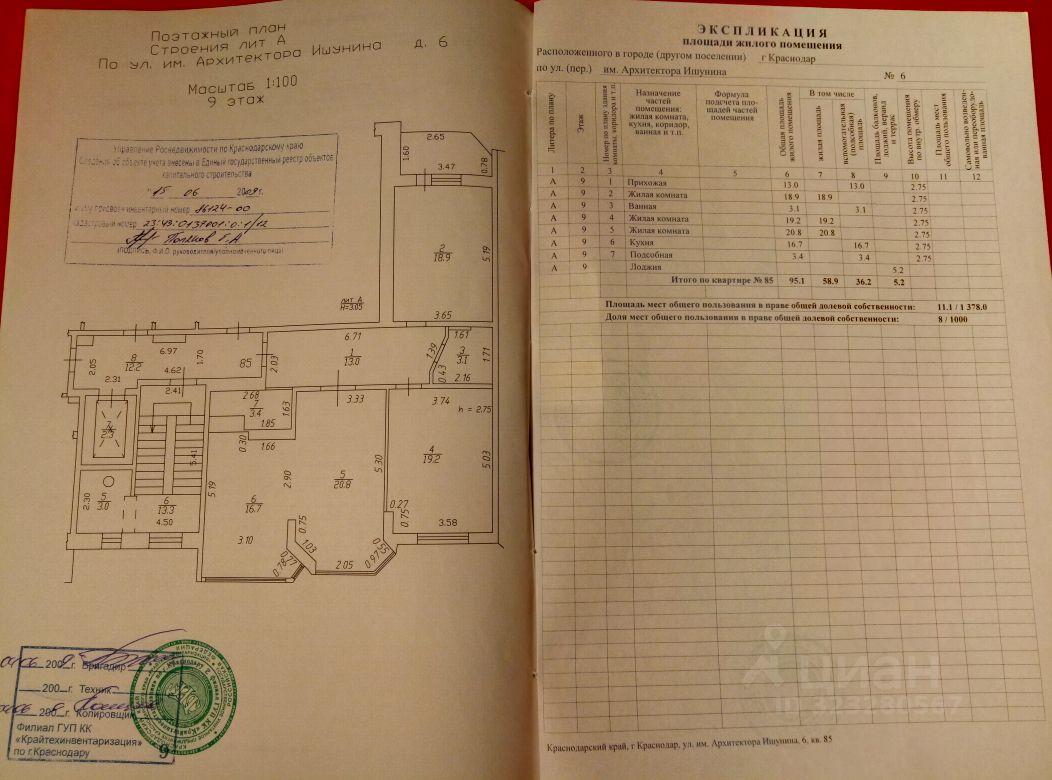 Поэтажный план
Строения лит А
По ул. им. Архитектора Ишунина д. 6
Масштаб 1:100
9 этаж
Управление Роснедвижимости по Краснодарскому краю
Сведения об объекте учета внесены в Единый государственный реестр объектов
капитального строительства
"15 06 2009г.
инвентарный номер 86124-00
кадастровый номер
(ПОДПИСЬ, Ф.И.О. руководителя/уполномоченного лица)
2.65
1.60
3.47
0.78
2
18.9
5.19
лит А
H=3.05
3.65
6.71
1.67
6.97
1.70
2.05
8
12.2
85
2.03
1
13.0
1.39
3
3.1
1.71
4.62
0.43
2.16
2.31
2.41
2.68
3.33
3.74
7
3.4
1.63
h = 2.75
7
2.3
1.85
0.30
1.66
5.41
4
19.2
5.03
5.30
2.90
5
20.8
5.19
2.30
5
3.0
6
13.3
6
16.7
0.27
4.50
0.75
0.75
3.58
3.10
1.03
0.55
0.77
0.78
2.05
0.97
200 г. Бригадир
200 г. Техник
200 г. Копировщик
Филиал ГУП КК
«Крайтехинвентаризация»
по г.Краснодару
9
ЭКСПЛИКАЦИЯ
площади жилого помещения
Расположенного в городе (другом поселении) г Краснодар
по ул. (пер.) им. Архитектора Ишунина № 6
Литера по плану
Этаж
Номер по плану здания комнаты, коридора и т.п.
Назначение частей помещения: жилая комната, кухня, коридор, ванная и т.п.
Формула подсчета площадей частей помещения
Общая площадь жилого помещения
В том числе
жилая площадь
вспомогательная (подсобная) площадь
Площадь балконов, лоджий, веранд и террас
Высота помещения по внутр. обмеру
Площадь мест общего пользования
Самовольно возведенная или переоборудованная площадь
1 2 3 4 5 6 7 8 9 10 11 12
А 9 1 Прихожая 13.0 13.0 2.75
А 9 2 Жилая комната 18.9 18.9 2.75
А 9 3 Ванная 3.1 3.1 2.75
А 9 4 Жилая комната 19.2 19.2 2.75
А 9 5 Жилая комната 20.8 20.8 2.75
А 9 6 Кухня 16.7 16.7 2.75
А 9 7 Подсобная 3.4 3.4 2.75
А 9 Лоджия 5.2
Итого по квартире № 85 95.1 58.9 36.2 5.2
Площадь мест общего пользования в праве общей долевой собственности: 11.1 / 1 378.0
Доля мест общего пользования в праве общей долевой собственности: 8 / 1000
циан
Краснодарский край, г Краснодар, ул. им. Архитектора Ишунина, 6, кв. 85